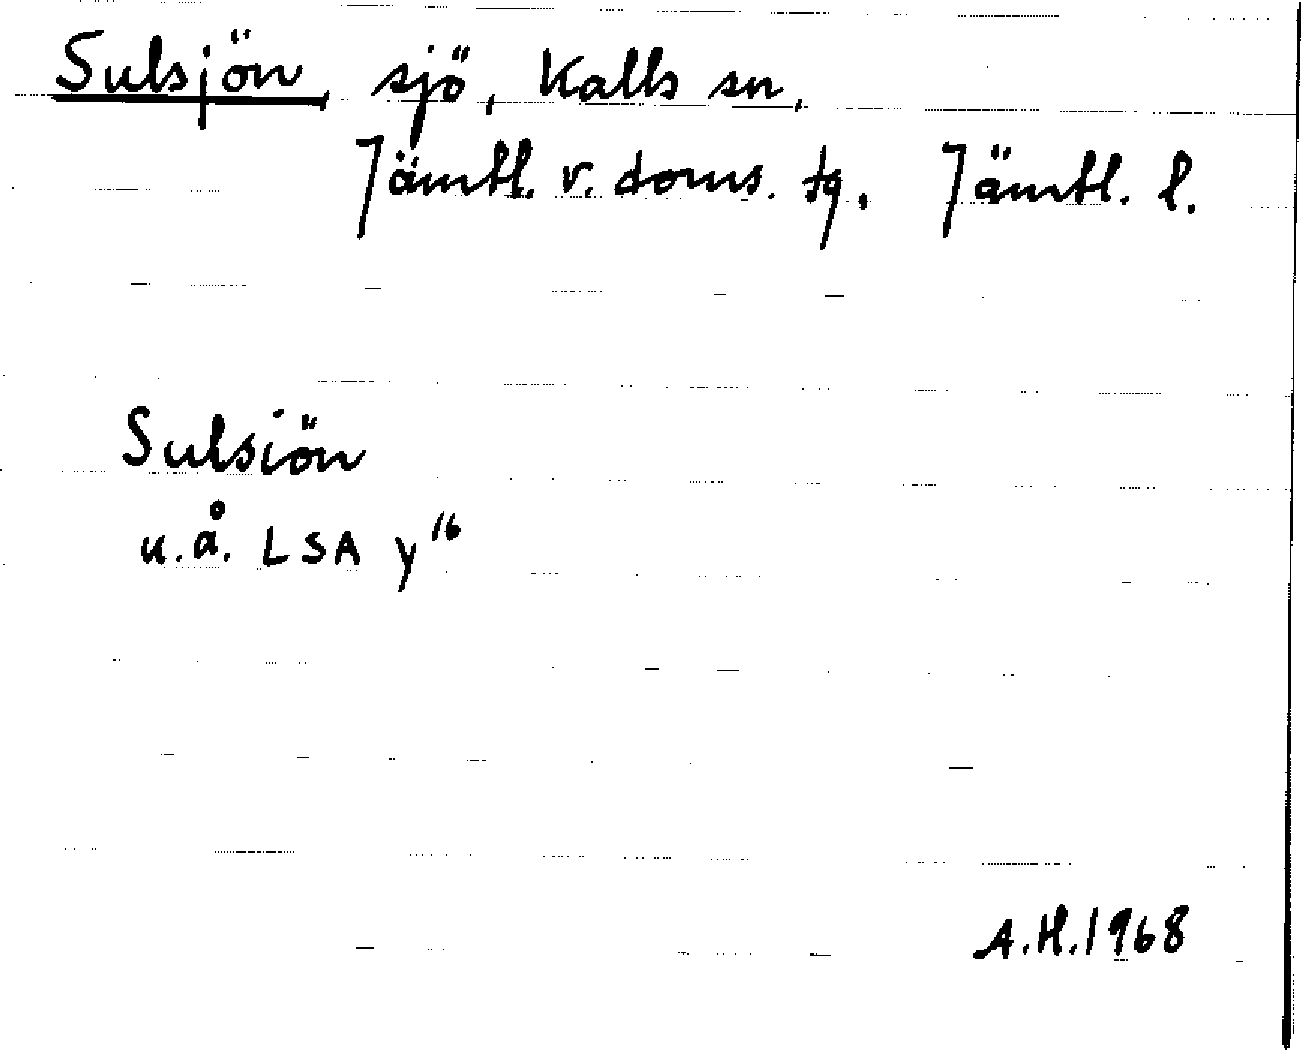 Sulsjön, sjö, Kalls sn,
Jämtl. v. doms. tg. Jämtl. l.
Sulsiön
u.å. LSA y16
A.H. 1968